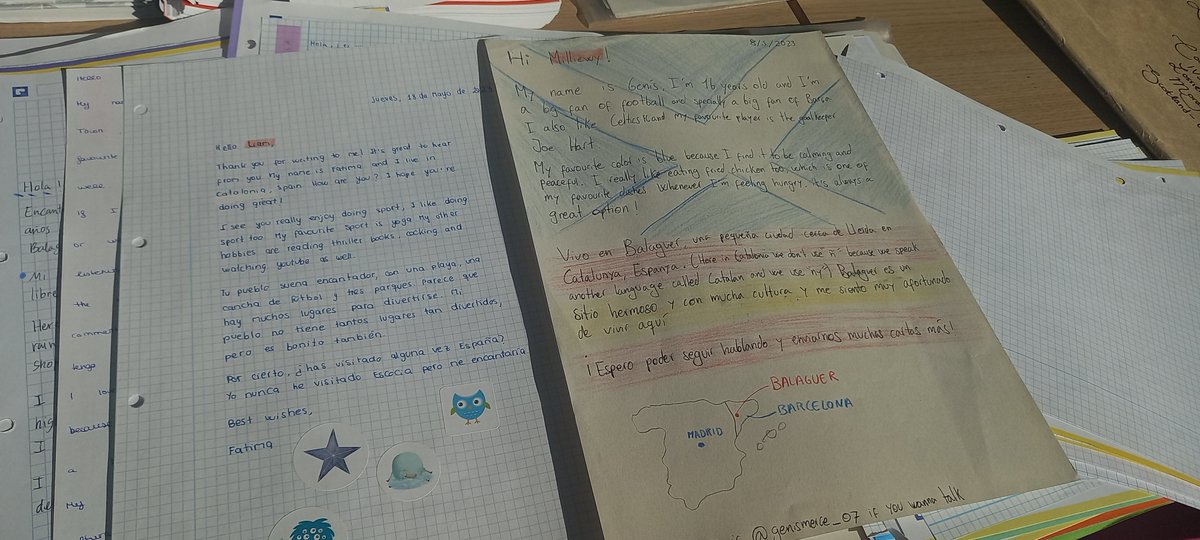 Hola
Encant
años
Balag
Mi
libre
Her
rain
sho
I
hig
I
I
de
My
Town
favourite
were
is I
or
listening
the
commen
lengo
I lov
because
a
My
Hola,
Jueves, 18 de mayo de
Hello Liam,
Thank you for writing to me! It's great to hear
from you. My name is Fatima and I live in
Catalonia, Spain. How are you? I hope you're
doing great!
I see you really enjoy doing sport, I like doing
sport too. My favourite sport is yoga. My other
hobbies are reading thriller books, cooking and
watching youtube as well.
Tu pueblo suena encantador, con una playa, una
cancha de fútbol y tres parques. Parece que
hay muchos lugares para divertirse. Mi
pueblo no tiene tantos lugares tan divertidos,
pero es bonito también.
Por cierto, ¿has visitado alguna vez España?
Yo nunca he visitado Escocia pero me encantaría
Best wishes,
Fatima
8/3/2023
Hi Milliewy!
My name is Genís. I'm 16 years old and I'm
a big fan of football and specially a big fan of Barça
I also like Celtics and my favourite player is the goalkeeper
Joe Hart
My favourite color is blue because I find it to be calming and
peaceful. I really like eating fried chicken too, which is one of
my favourite dishes. Whenever I'm feeling hungry, it's always a
great option!
Vivo en Balaguer, una pequeña ciudad cerca de Lleida en
Catalunya, Espanya. (Here in Catalonia we don't use "ñ" because we speak
another language called Catalan and we use "ny") Balaguer es un
sitio hermoso y con mucha cultura y me siento muy afortunado
de vivir aquí
¡Espero poder seguir hablando y enviarnos muchas cartas más!
BALAGUER
BARCELONA
MADRID
@genismerce_07 if you wanna talk